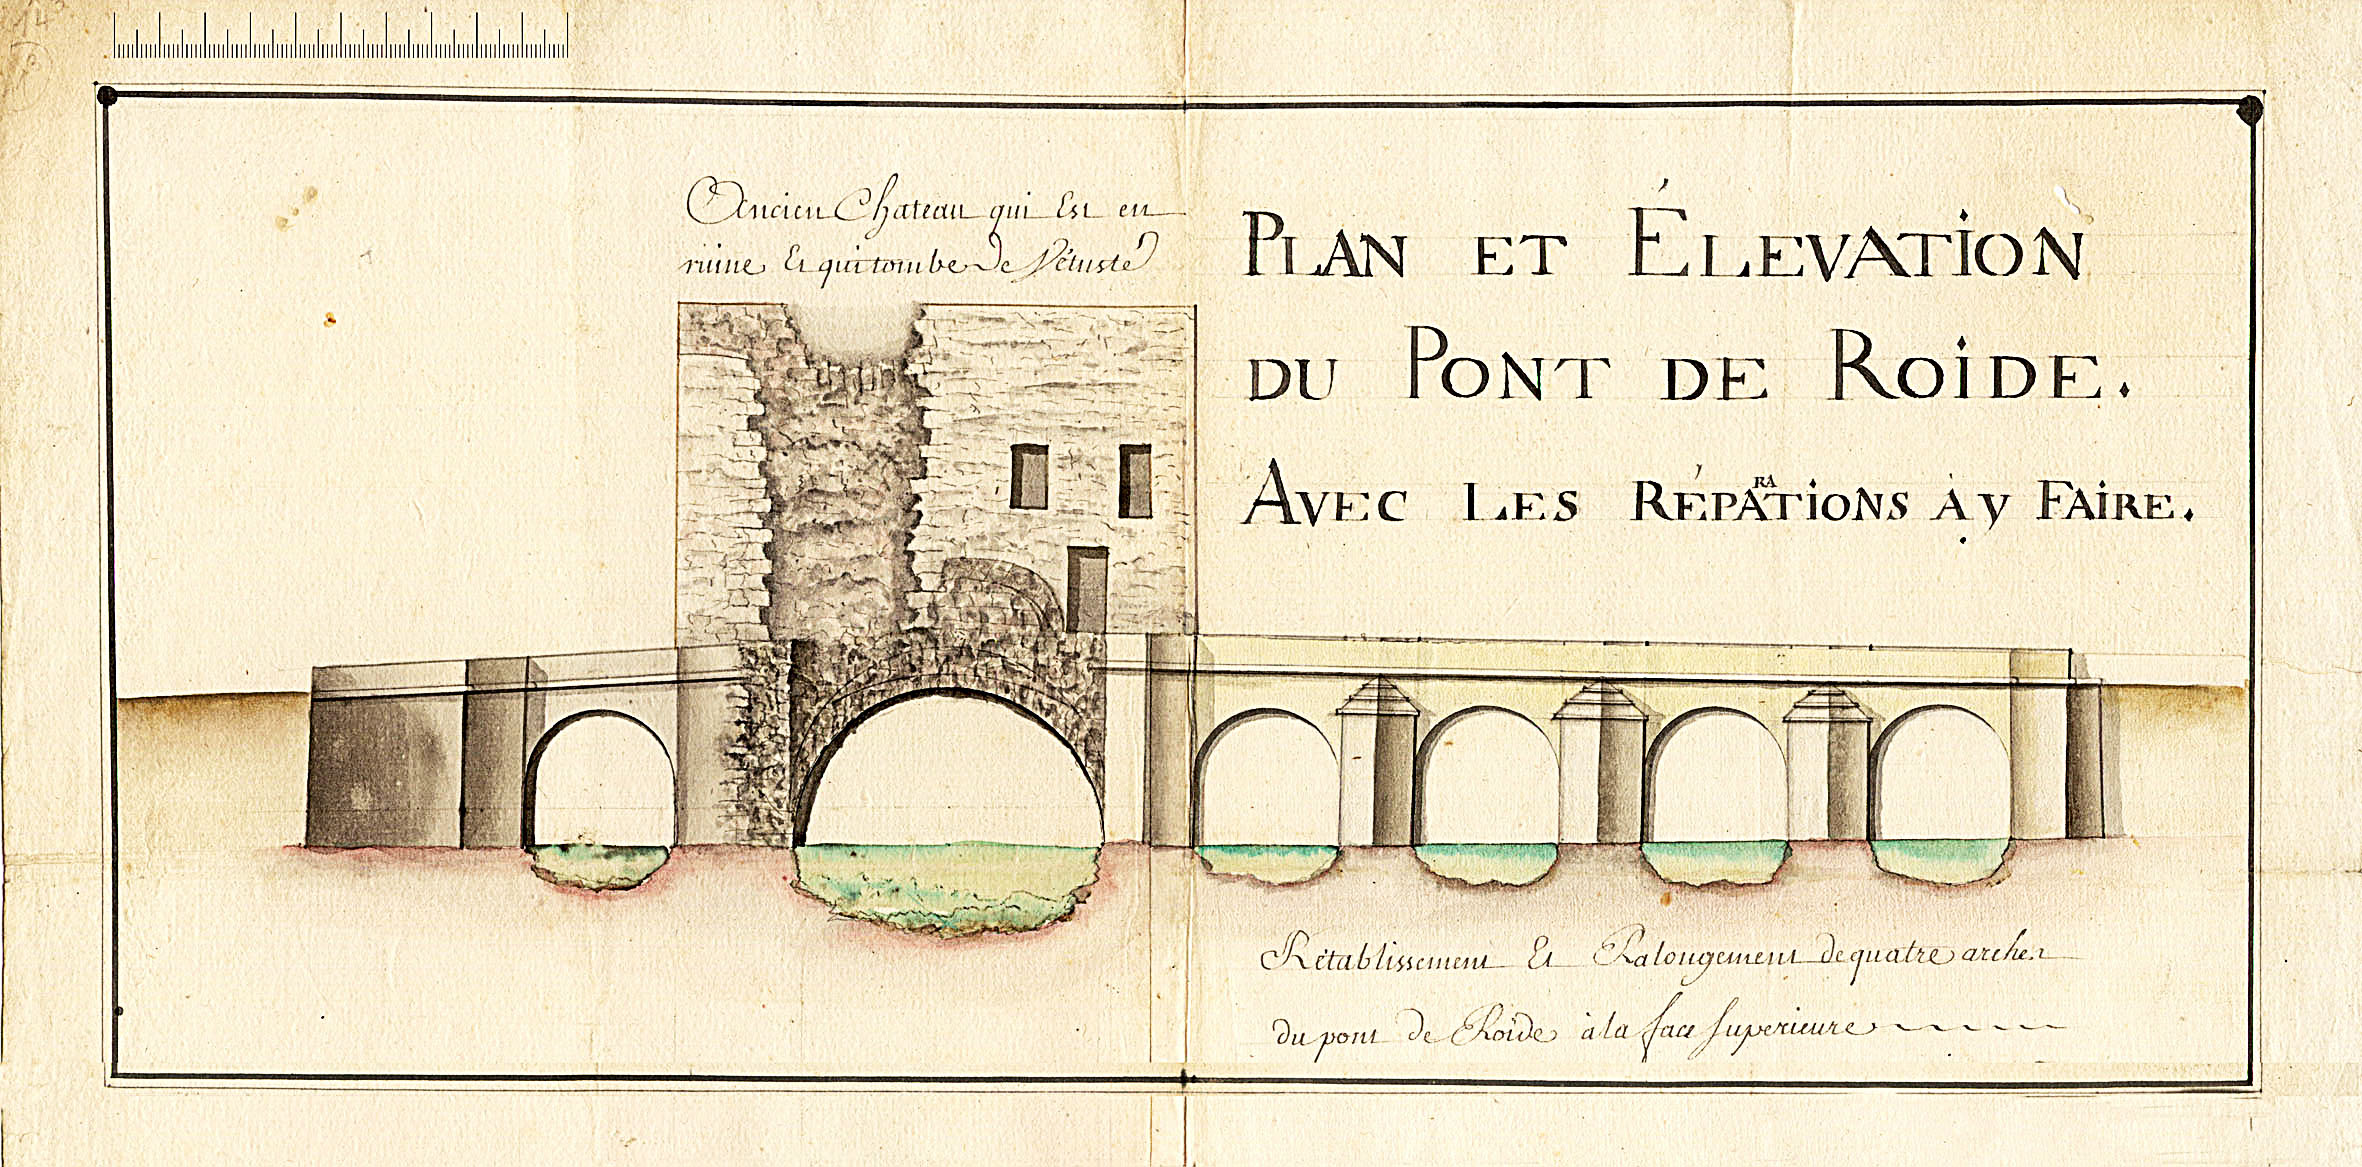 Ancien Chateau qui Est en
ruine Et qui tombe de Vétusté
PLAN ET ÉLEVATION
DU PONT DE ROIDE.
AVEC LES RÉPARATIONS À Y FAIRE.
Rétablissement Et Ralongement de quatre arches
du pont de Roide à la face Superieure